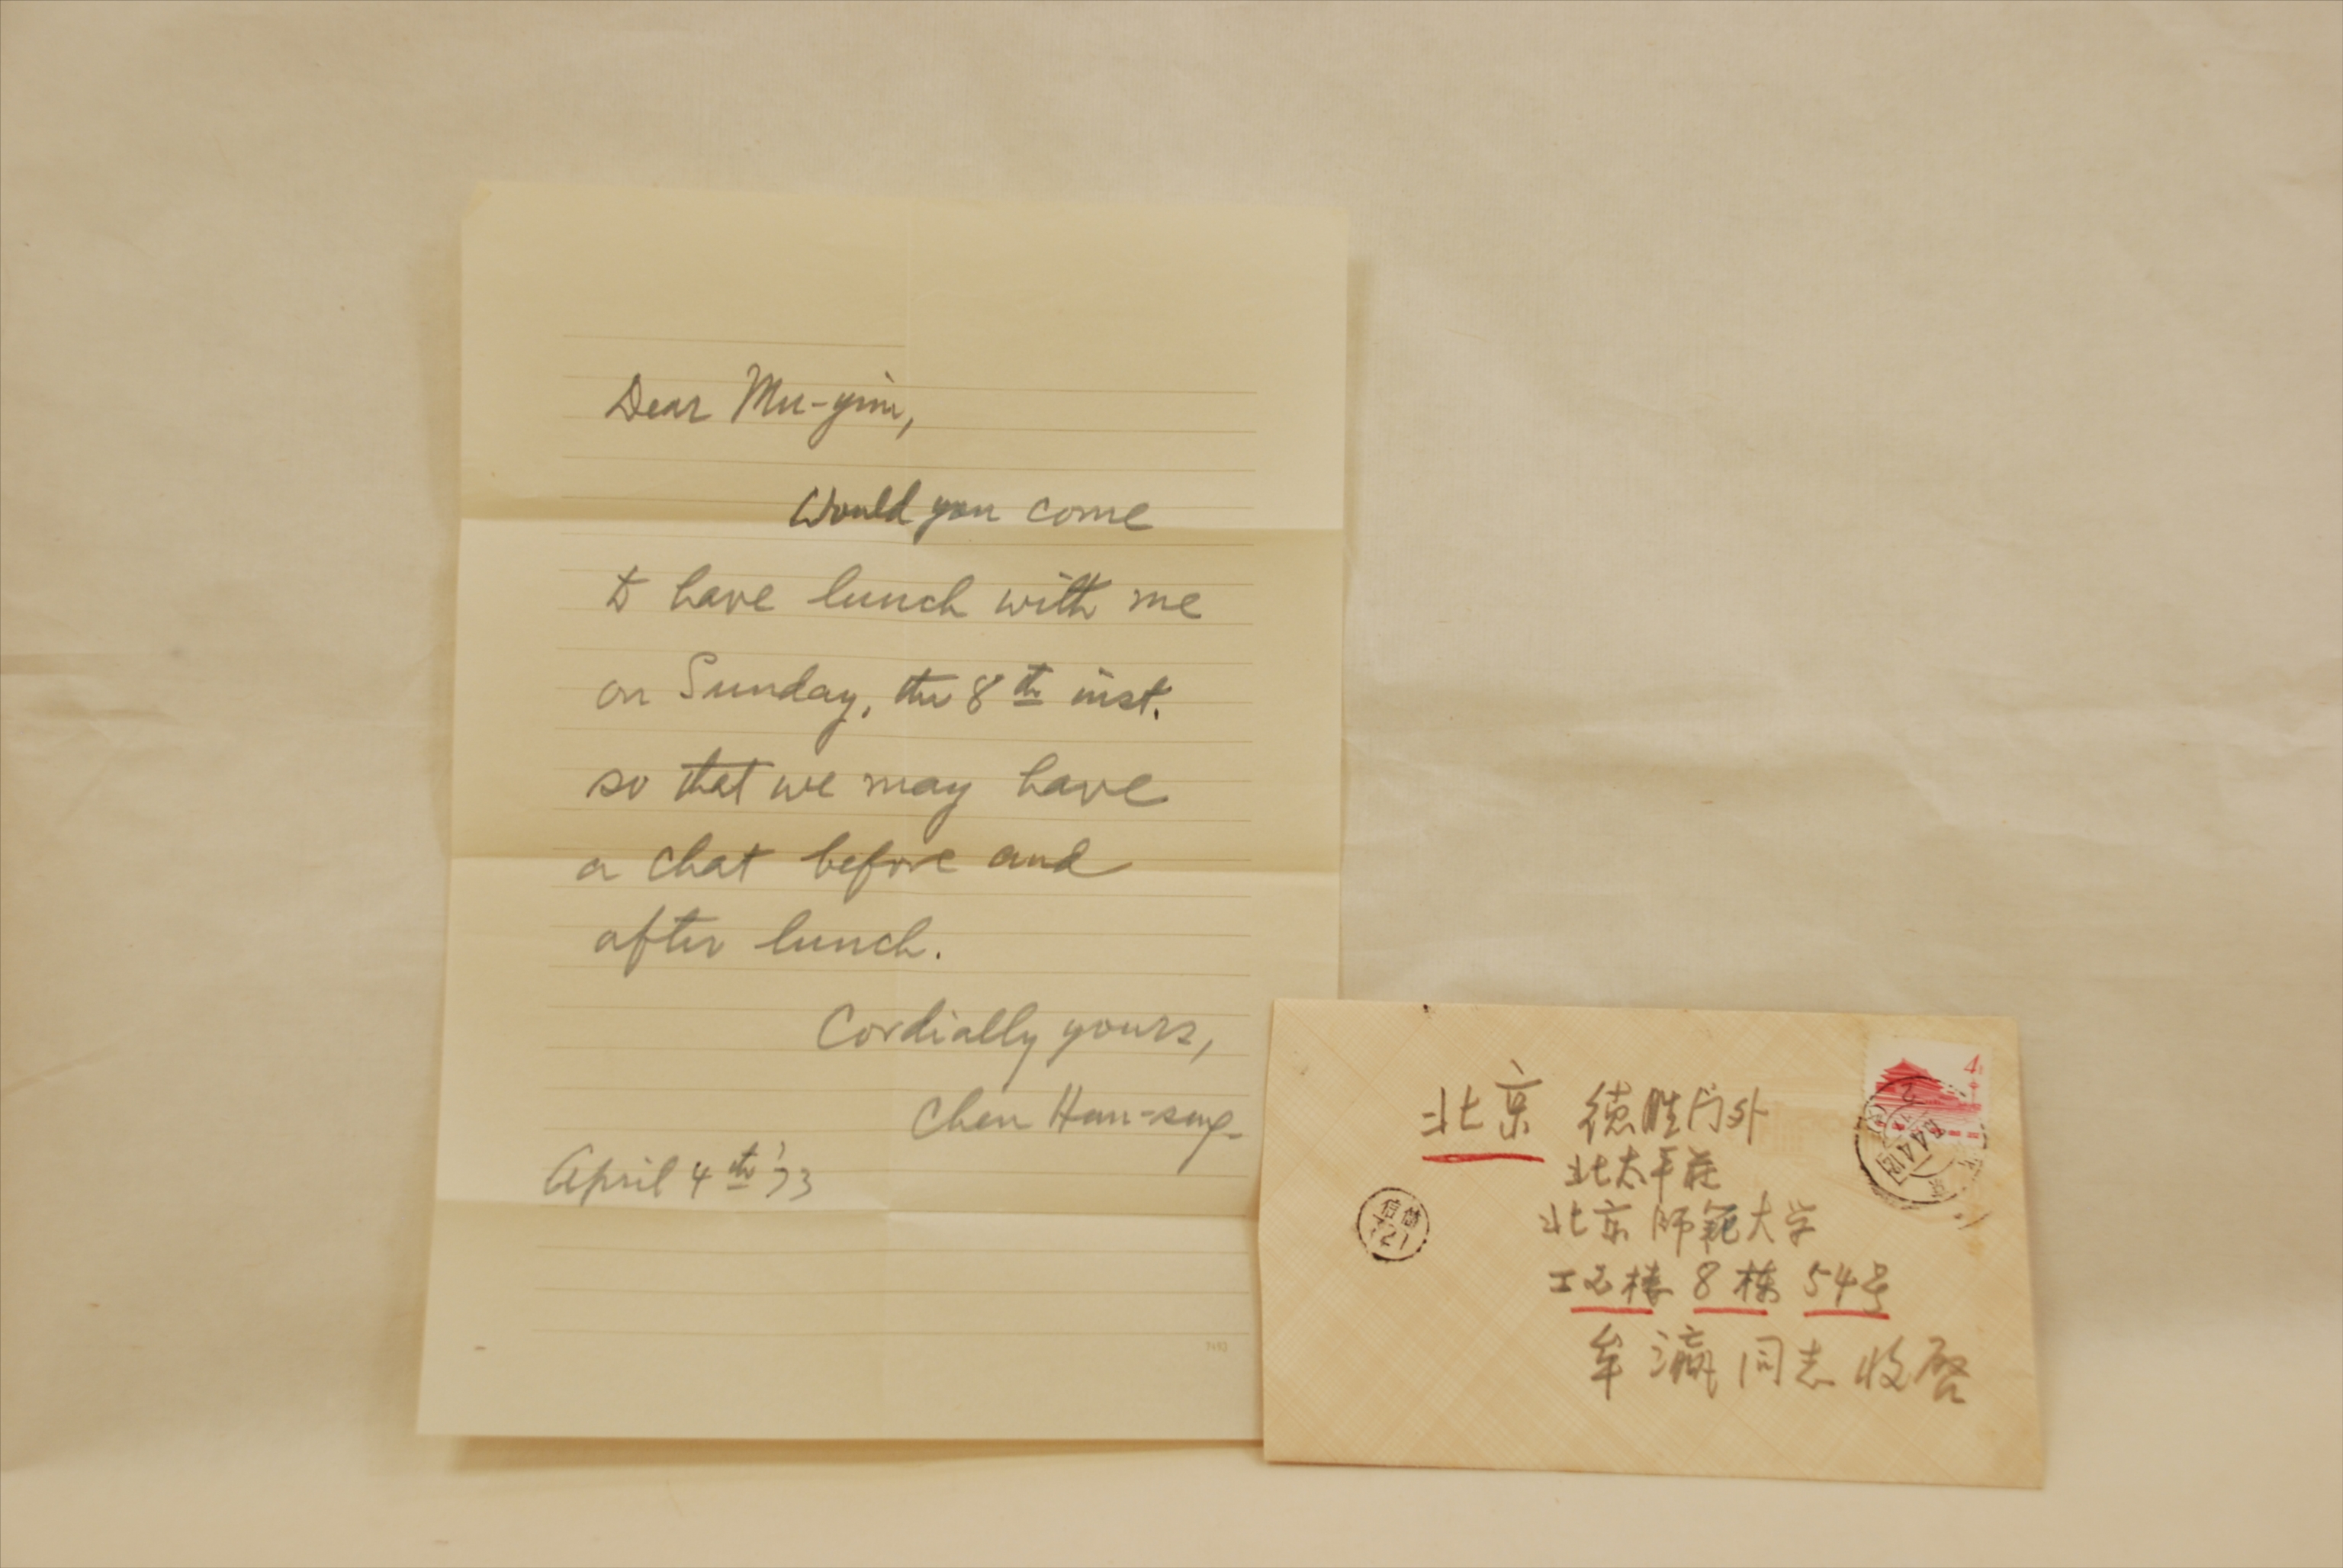 Dear Mu-yin,
Would you come
to have lunch with me
on Sunday, the 8th inst.
so that we may have
a chat before and
after lunch.
Cordially yours,
Chen Han-seng
April 4th '73
北京 德胜门外
北太平庄
北京师範大学
工 楼 8栋 54号
牟瀛同志收启
4